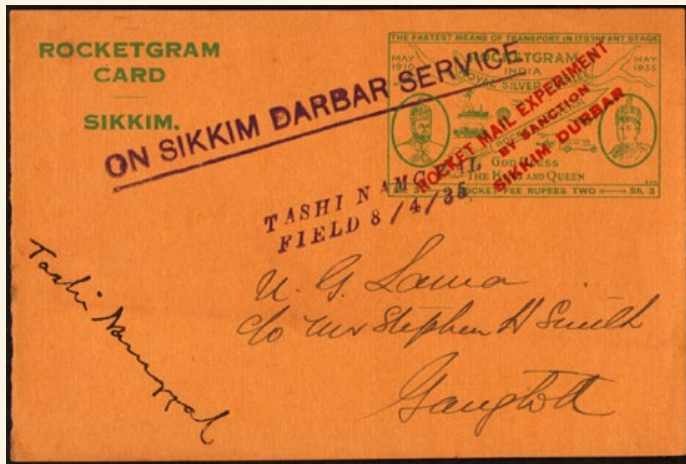 ROCKETGRAM
CARD
SIKKIM.
ON SIKKIM DARBAR SERVICE
THE FASTEST MEANS OF TRANSPORT IN ITS INFANT STAGE
MAY 1910
ROCKETGRAM
INDIA
ROYAL SILVER
MAY 1935
ROCKET MAIL EXPERIMENT
BY SANCTION
SIKKIM DURBAR
GOD BLESS
THE KING AND QUEEN
ROCKET FEE RUPEES TWO
Sh. 3
TASHI NAMGYAL
FIELD 8/4/35
Tashi Namgyal
U. G. Lama
c/o Mr Stephen H Smith
Gangtok